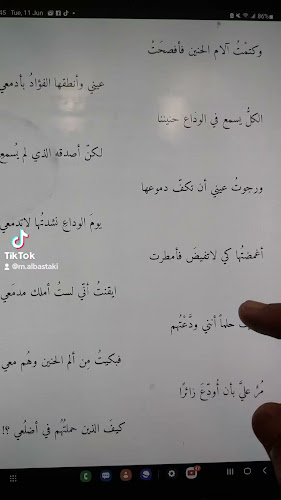 45 Tue, 11 Jun
86%
وكتمتُ آلام الحنين فأفصحَتْ
عيني وأنطقها الفؤادُ بأدمعي
الكلُّ يسمع في الوداع حنيننا
لكنّ أصدقه الذي لم يُسمعِ
ورجوتُ عيني أن تكفّ دموعها
يومَ الوداعِ نشدتُها لاتدمعي
أغمضتُها كي لاتفيضَ فأمطرت
ايقنتُ أنّي لستُ أملك مدمَعي
حلماً أنني ودَّعْتُهم
فبكيتُ مِن ألم الحنين وهُم معي
مُرٌ عليَّ بأن أُودّعَ زائرًا
كيفَ الذين حملتُهُم في أضلُعي ؟!
TikTok
@m.albastaki